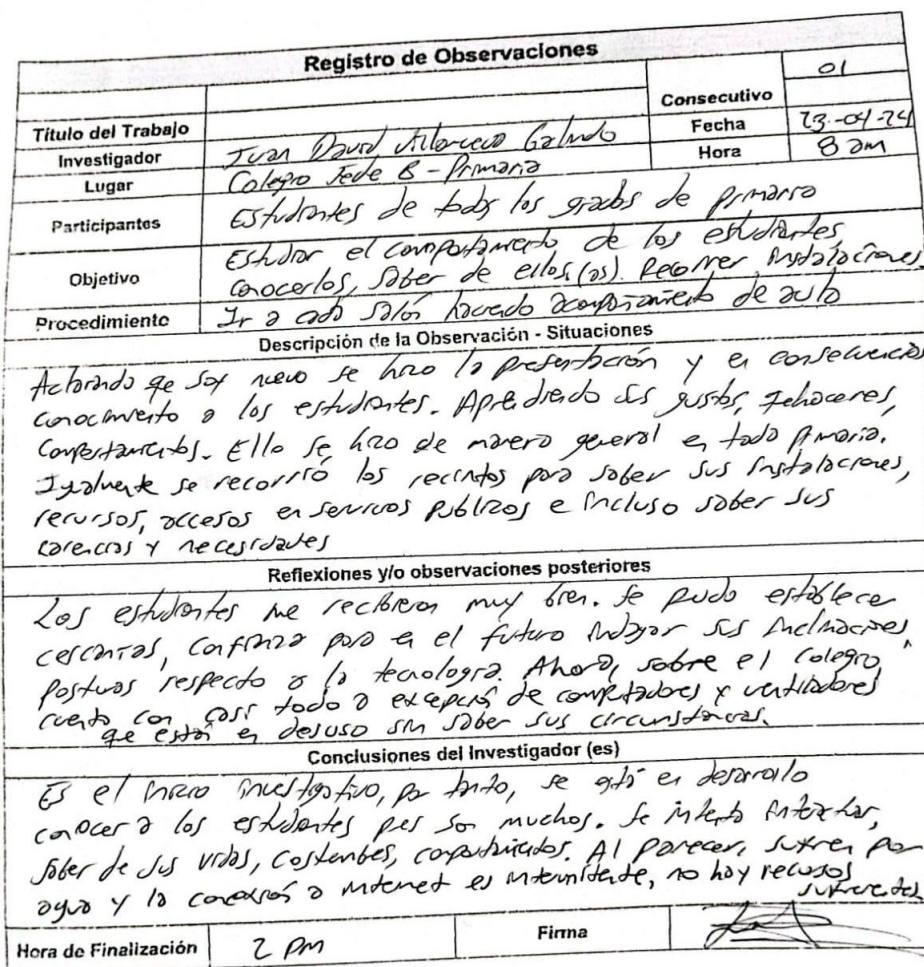 Registro de Observaciones
Título del Trabajo
Consecutivo 01
Investigador Juan David Villarreal Galindo
Fecha 23-04-24
Lugar Colegio Sede B - Primaria
Hora 8 am
Participantes Estudiantes de todos los grados de primaria
Objetivo Estudiar el comportamiento de los estudiantes
conocerlos, saber de ellos (as). Recorrer instalaciones.
Procedimiento Ir a cada salón haciendo acompañamiento de aula
Descripción de la Observación - Situaciones
Aclarando que soy nuevo se hizo la presentación y en consecuencia
conocimiento a los estudiantes. Aprendiendo sus gustos, quehaceres,
comportamientos. Ello se hizo de manera general en toda primaria.
Igualmente se recorrió los recintos para saber sus instalaciones,
recursos, accesos en servicios públicos e incluso saber sus
carencias y necesidades
Reflexiones y/o observaciones posteriores
Los estudiantes me recibieron muy bien. Se pudo establecer
cercanías, confianza para en el futuro indagar sus inclinaciones,
posturas respecto a la tecnología. Ahora, sobre el colegio,
cuenta con casi todo a excepción de computadores y ventiladores
que están en desuso sin saber sus circunstancias.
Conclusiones del Investigador (es)
Es el inicio investigativo, por tanto, se está en desarrollo
conocer a los estudiantes pues son muchos. Se intenta interactuar,
saber de sus vidas, costumbres, comportamientos. Al parecer, sufren por
agua y la conexión a internet es intermitente, no hay recursos
suficientes
Hora de Finalización 2 pm
Firma